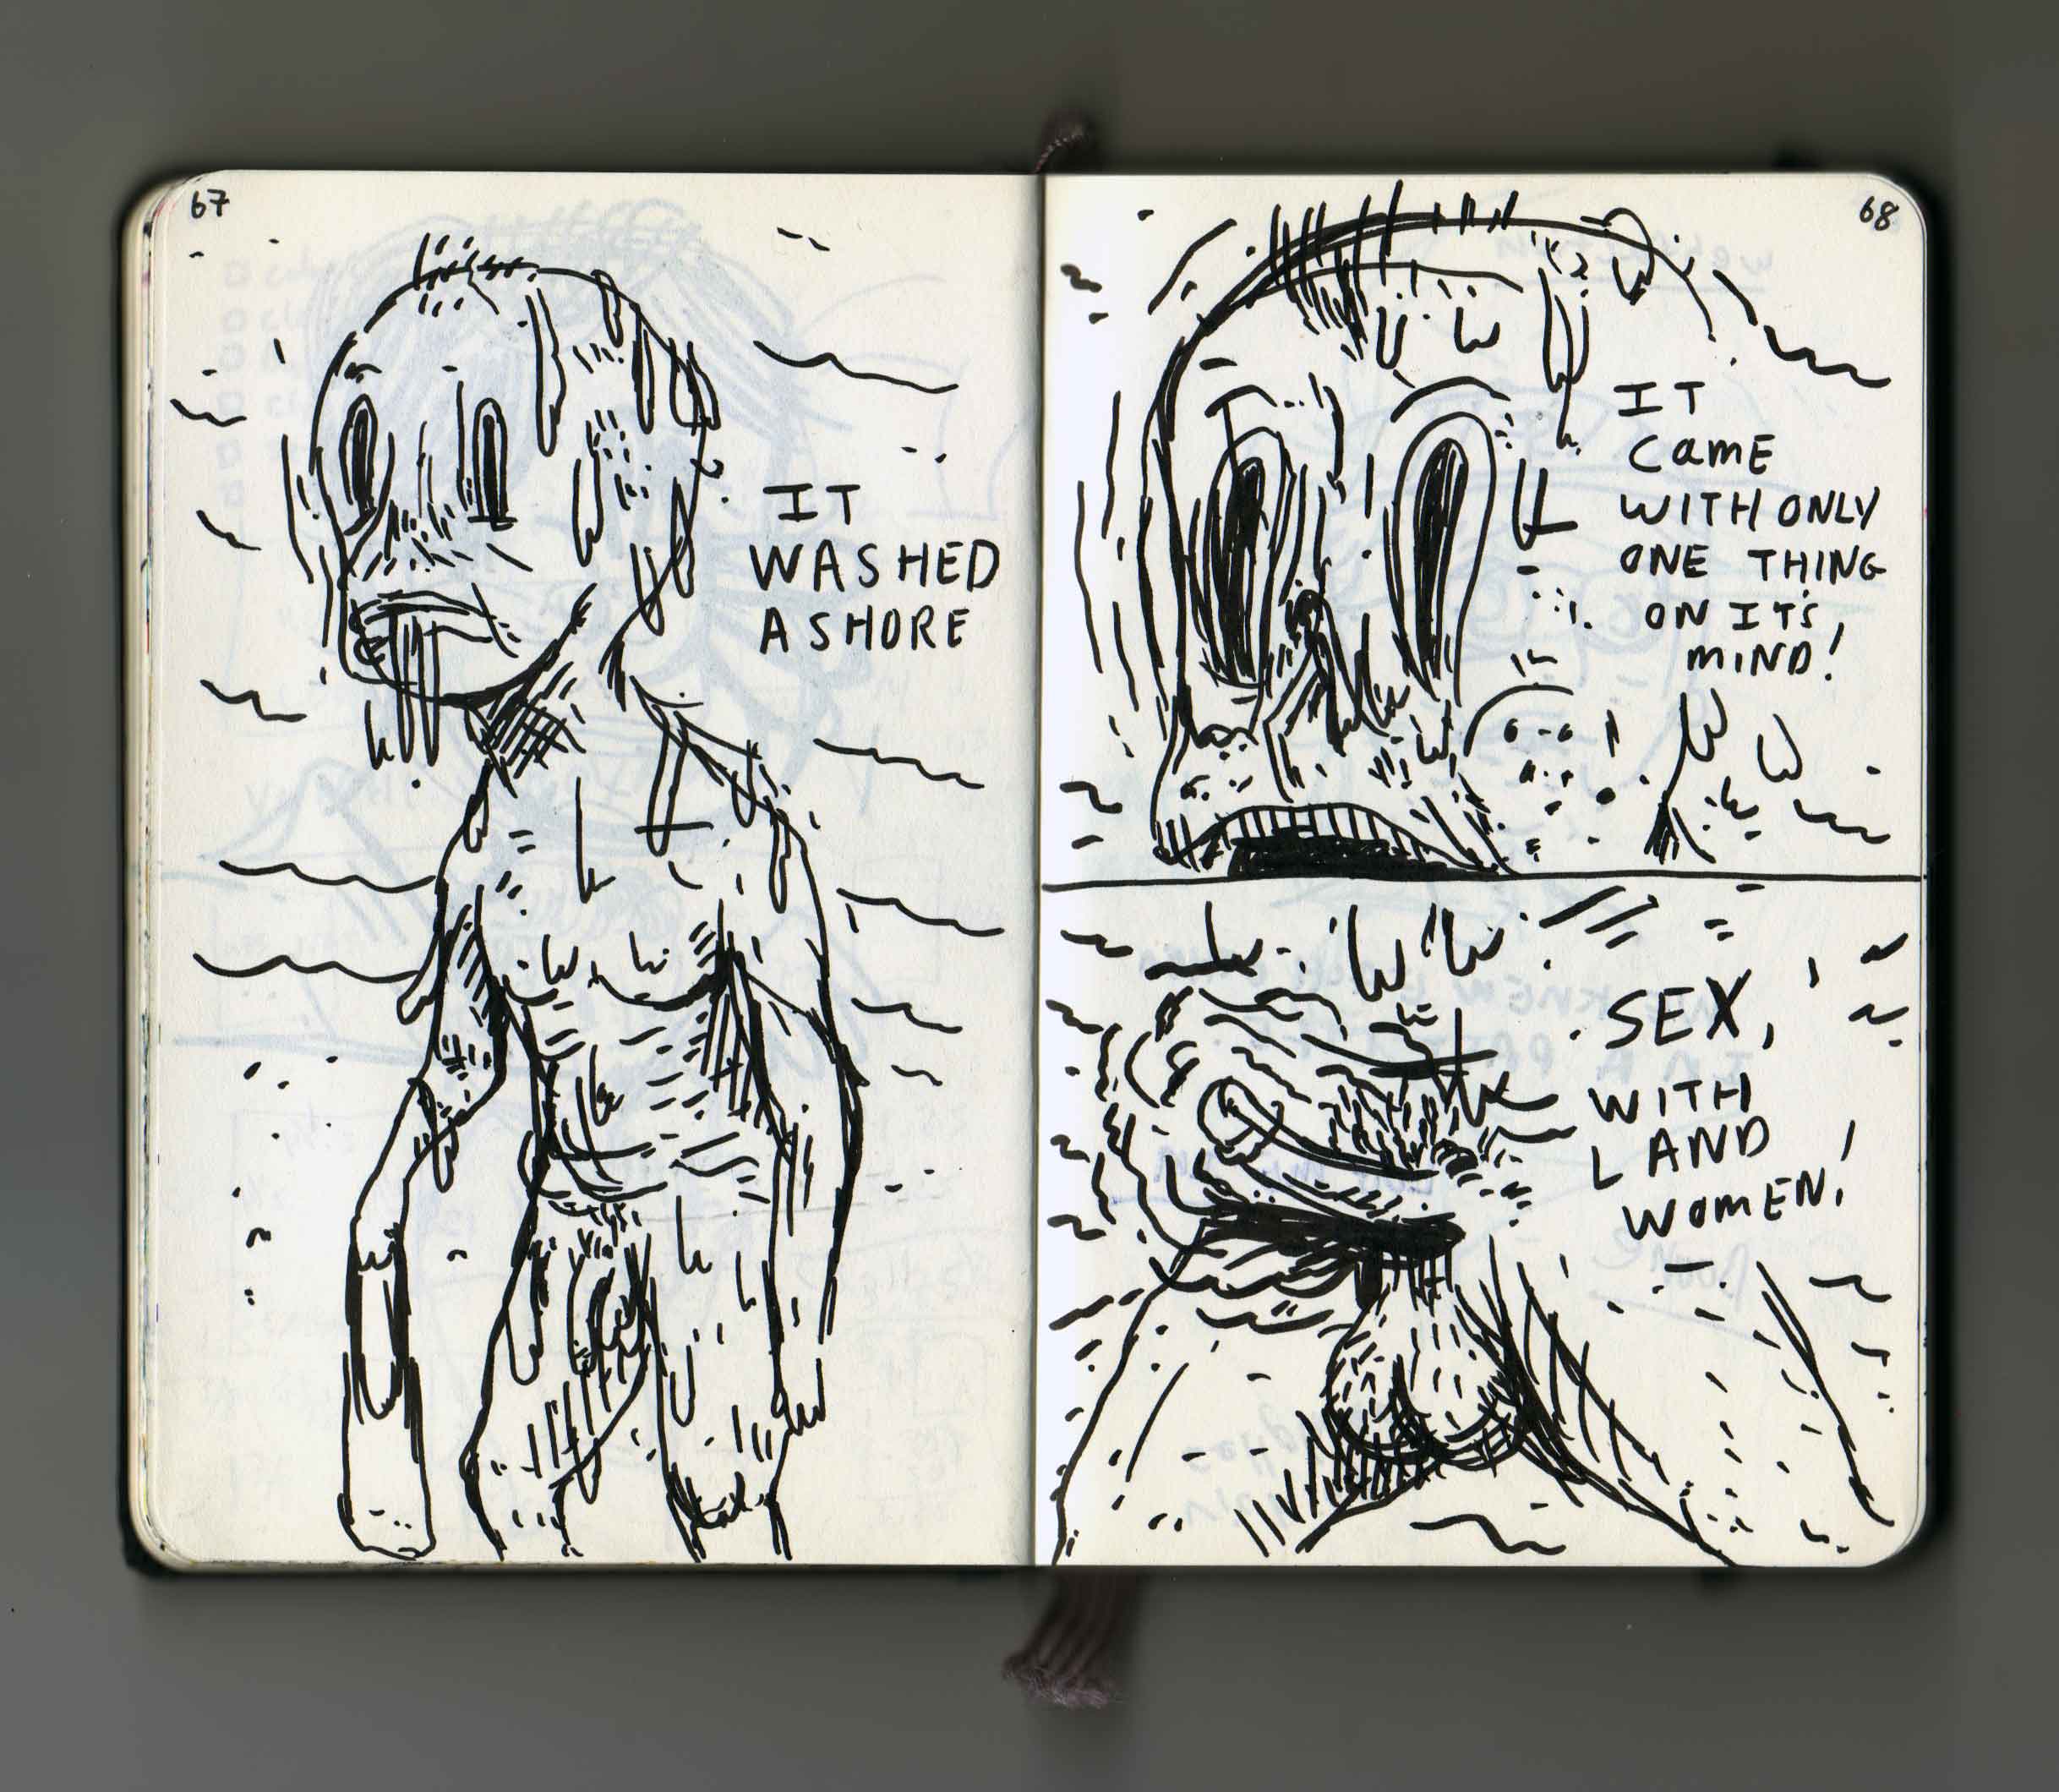 67
IT
WASHED
ASHORE
68
IT
CAME
WITH ONLY
ONE THING
ON IT'S
MIND!
SEX,
WITH
LAND
WOMEN!